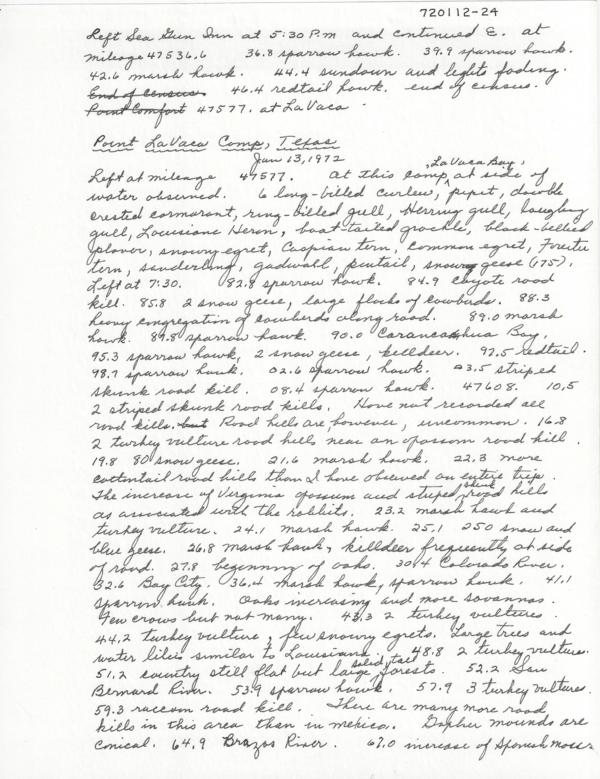 720112-24
Left Sea Gun Inn at 5:30 P.m and cntinued E. at
mileage 47536.6 36.8 sparrow hawk. 39.9 sparrow hawk.
42.6 marsh hawk. 44.4 sundown and lights fading.
End of census. 46.4 redtail hawk. end of census.
Point Comfort 47577. at LaVaca
Point LaVaca Comp, Texas
Jan 13, 1972
Left at mileage 47577. At this comp, LaVaca Bay, at side of
water observed. 6 long-billed curlew, pipit, double
crested cormorant, ring-billed gull, Herring gull, laughing
gull, Louisiana Heron, boat-tailed grackle, black-bellied
plover, snowy egret, Caspian tern, common egret, Forster
tern, sanderling, gadwall, pintail, snow geese (175).
Left at 7:30. 82.8 sparrow hawk. 84.9 coyote road
kill. 85.8 2 snow geese, large flocks of cowbirds. 88.3
heavy congregation of cowbirds along road. 89.0 marsh
hawk. 89.8 sparrow hawk. 90.0 Carancahua Bay,
95.3 sparrow hawk, 2 snow geese, killdeer. 97.5 redtail.
98.7 sparrow hawk. 02.6 sparrow hawk. 03.5 striped
skunk road kill. 08.4 sparrow hawk. 47608. 10.5
2 striped skunk road kills. Have not recorded all
road kills. but Road kills are, however, uncommon. 16.8
2 turkey vulture road kills near an opossom road kill.
19.8 80 snow geese. 21.6 marsh hawk. 22.3 more
cottontail road kills than I have observed on entire trip.
The increase of Virginia opossum and striped skunk road kills
as associated with the rabbits. 23.2 marsh hawk and
turkey vulture. 24.1 marsh hawk. 25.1 250 snow and
blue geese. 26.8 marsh hawk, killdeer frequently at side
of road. 27.8 beginning of oaks. 30.4 Colorado River.
32.6 Bay City. 36.4 marsh hawk, sparrow hawk. 41.1
sparrow hawk. Oaks increasing and more savannas.
Few crows but not many. 43.3 2 turkey vultures.
44.2 turkey vulture, few snowy egrets. Large trees and
water lilies similar to Louisiana. 48.8 2 turkey vulture.
51.2 country still flat but large solid, tall forests. 52.2 San
Bernard River. 53.9 sparrow hawk. 57.9 3 turkey vultures.
59.3 raccoon road kill. There are many more road
kills in this area than in mexico. Gopher mounds are
conical. 64.9 Brazos River. 67.0 increase of Spanish moss